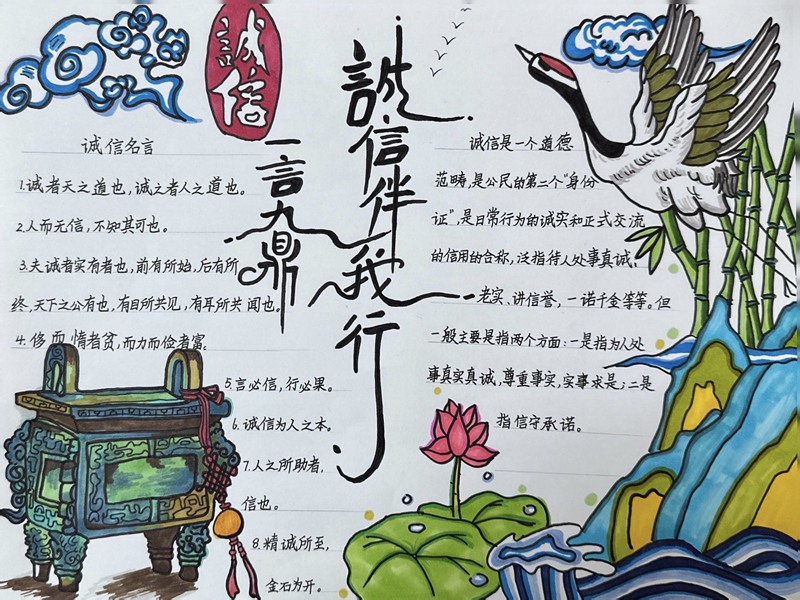 誠信
一言九鼎
誠信伴我行
诚信名言
1.诚者天之道也,诚之者人之道也。
2.人而无信,不知其可也。
3.夫诚者实有者也,前有所始,后有所
终,天下之公有也,有目所共见,有耳所共闻也。
4.侈而惰者贫,而力而俭者富。
5.言必信,行必果。
6.诚信为人之本。
7.人之所助者,
信也。
8.精诚所至,
金石为开。
诚信是一个道德
范畴,是公民的第二个“身份
证”,是日常行为的诚实和正式交流
的信用的合称,泛指待人处事真诚、
老实、讲信誉,一诺千金等等。但
一般主要是指两个方面:一是指为人处
事真实真诚,尊重事实,实事求是;二是
指信守承诺。